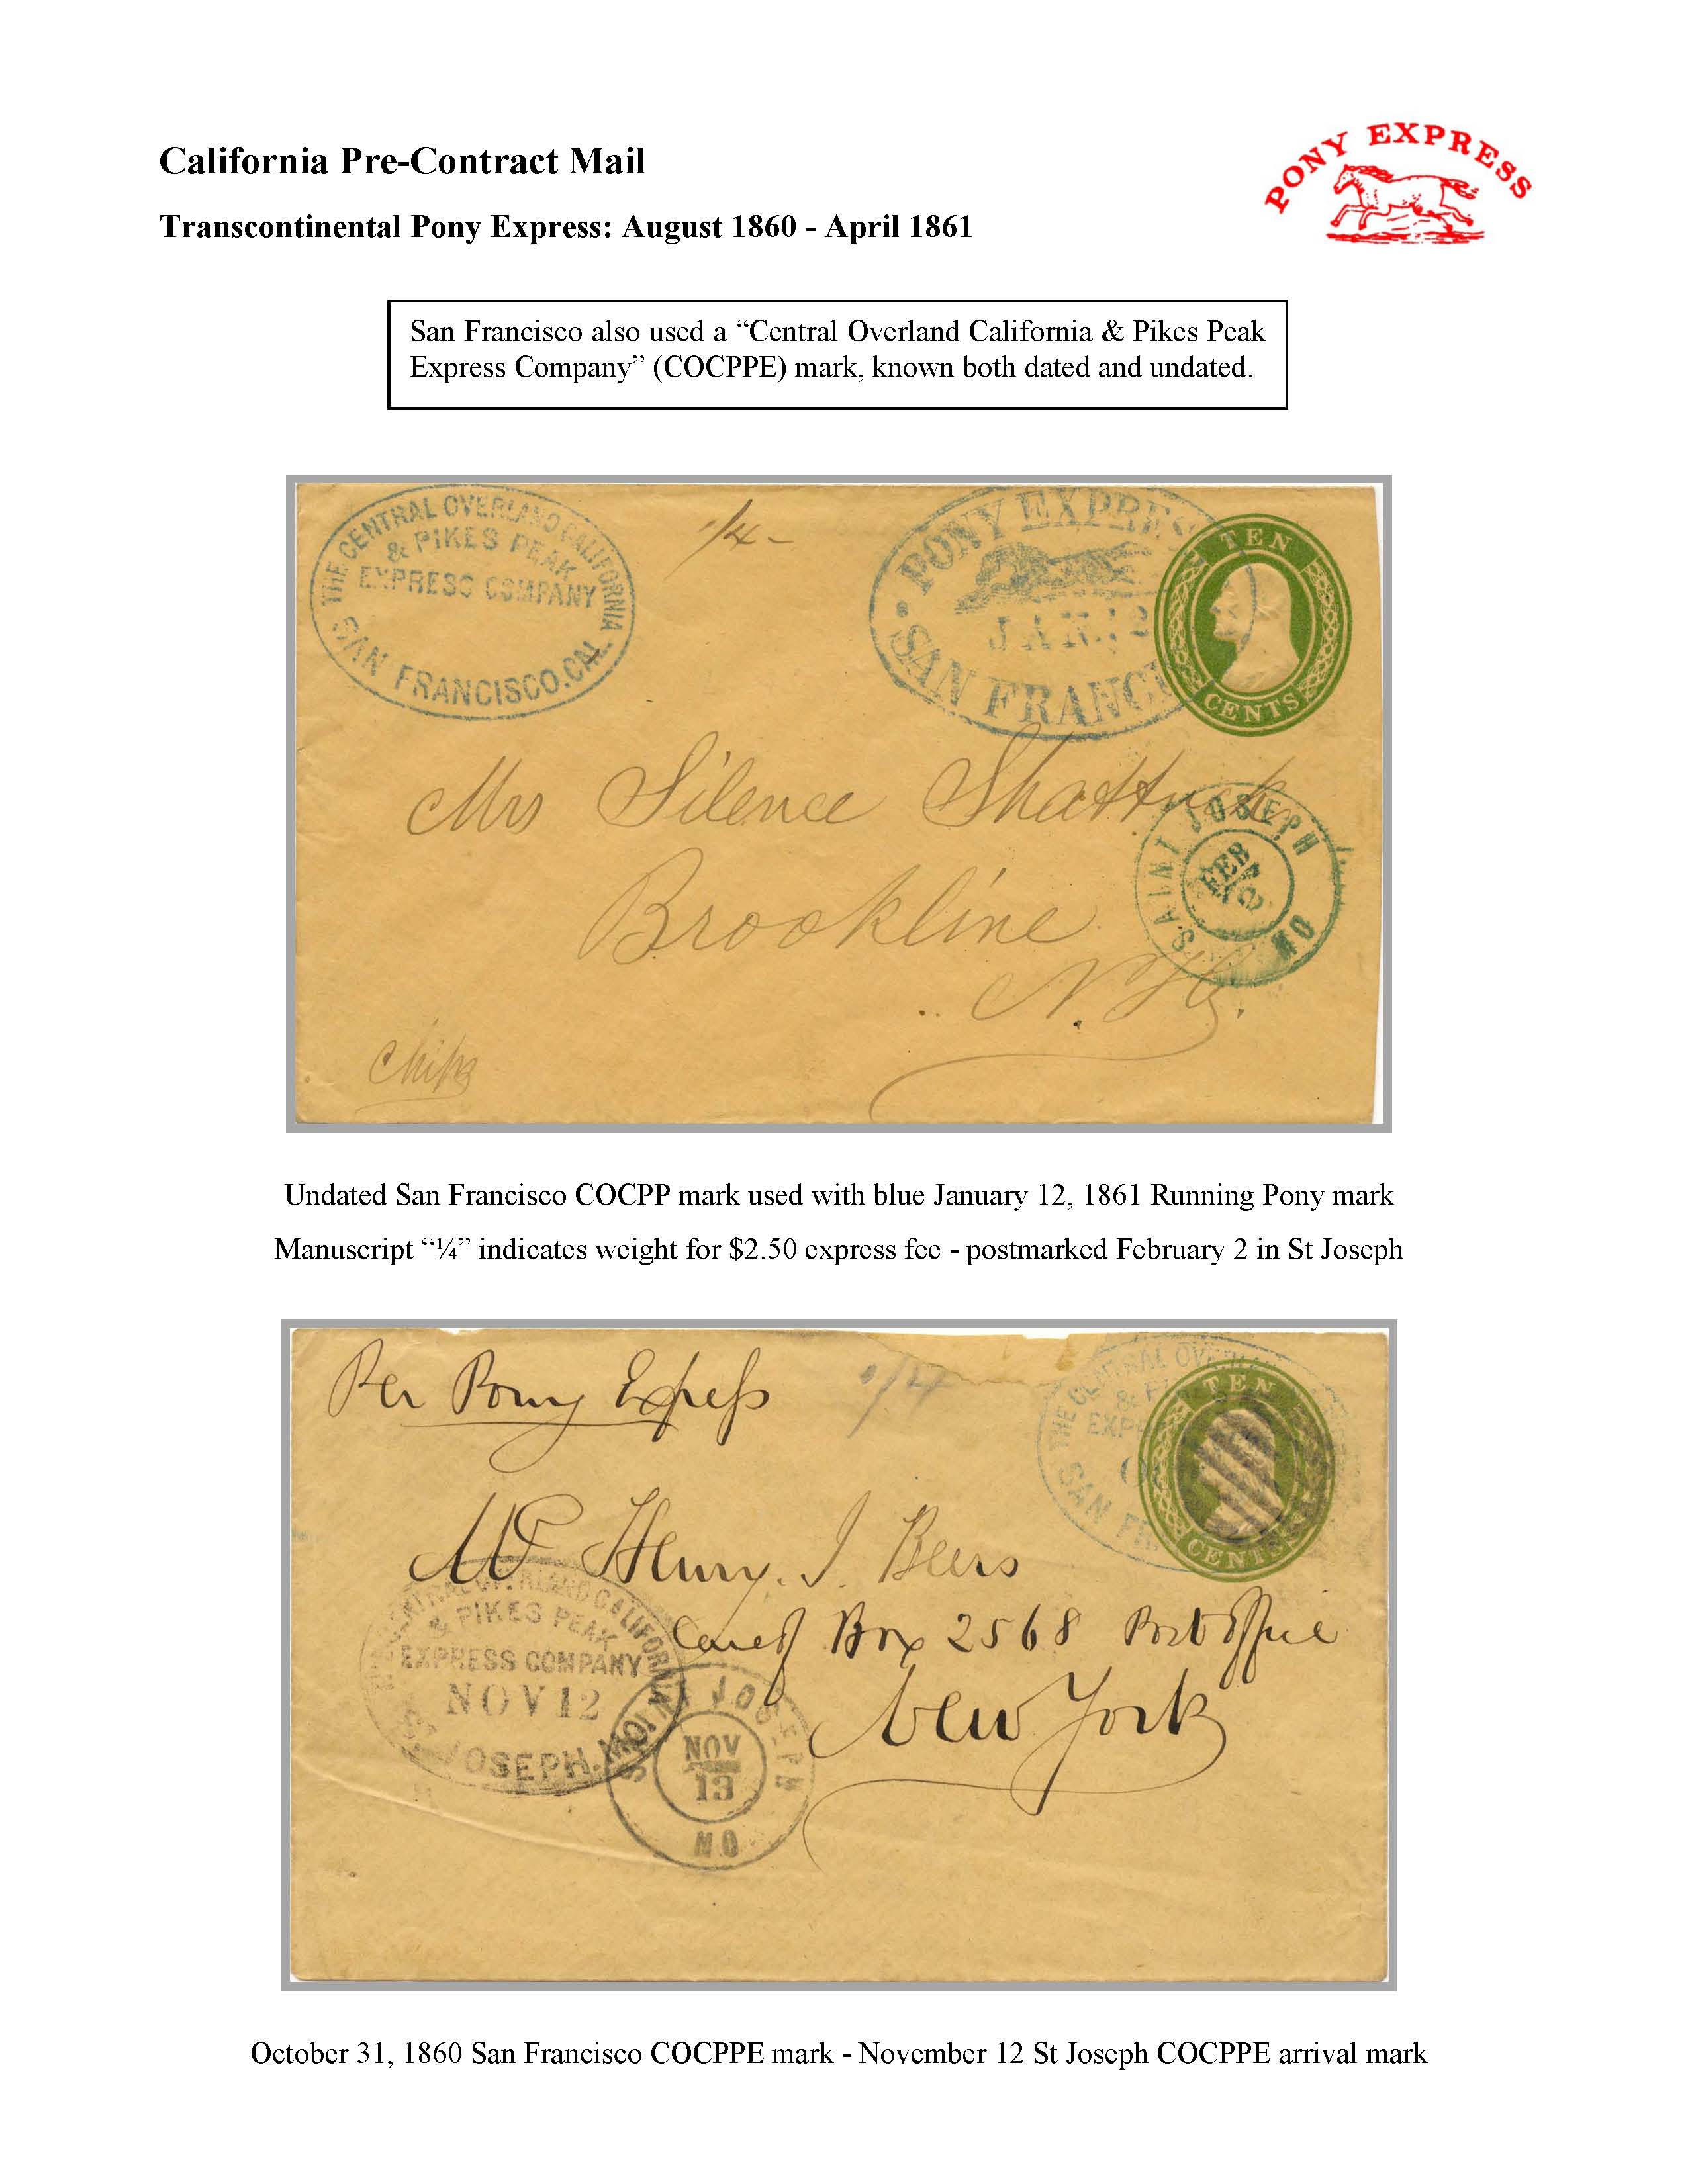 California Pre-Contract Mail
PONY EXPRESS
Transcontinental Pony Express: August 1860 - April 1861
San Francisco also used a “Central Overland California & Pikes Peak
Express Company” (COCPPE) mark, known both dated and undated.
THE CENTRAL OVERLAND CALIFORNIA
& PIKES PEAK
EXPRESS COMPANY
SAN FRANCISCO, CAL
1/4
PONY EXPRES
JAN. 12
SAN FRANCI
TEN
CENTS
Mrs Silence Shattuck
SAINT JOSEPH
FEB
MO
Brookline
N. H.
Undated San Francisco COCPP mark used with blue January 12, 1861 Running Pony mark
Manuscript “¼” indicates weight for $2.50 express fee - postmarked February 2 in St Joseph
Per Pony Express
1/4
THE CENTRAL OVER
& PI
EXP
SAN FR
TEN
CENTS
Mr Henry. J. Beers
Care of Box 2568 Post Office
New York
CENTRAL OVERLAND CALIFORNIA
& PIKES PEAK
EXPRESS COMPANY
NOV 12
ST JOSEPH, MO.
ST JOSEPH
NOV
13
MO
October 31, 1860 San Francisco COCPPE mark - November 12 St Joseph COCPPE arrival mark